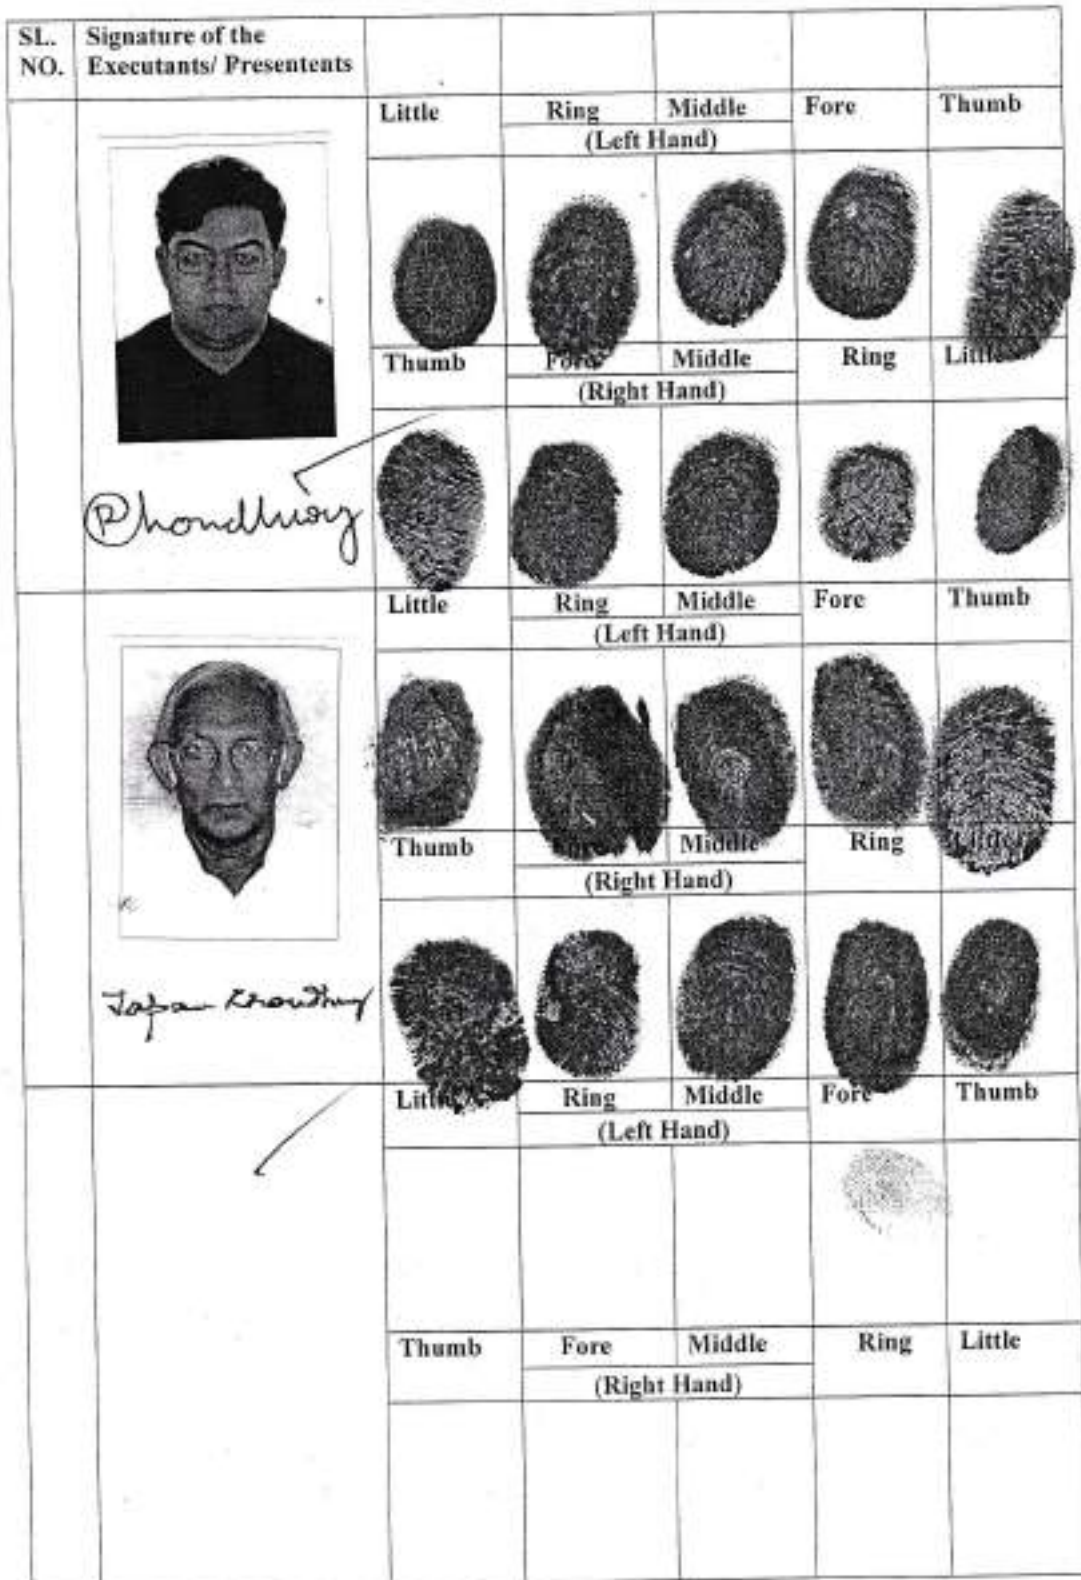 SL. NO. Signature of the Executants/ Presentents
Little Ring Middle Fore Thumb
(Left Hand)
Thumb Fore Middle Ring Little
(Right Hand)
Little Ring Middle Fore Thumb
(Left Hand)
Thumb Middle Ring Little
(Right Hand)
Tapan Choudhury
Little Ring Middle Fore Thumb
(Left Hand)
Thumb Fore Middle Ring Little
(Right Hand)